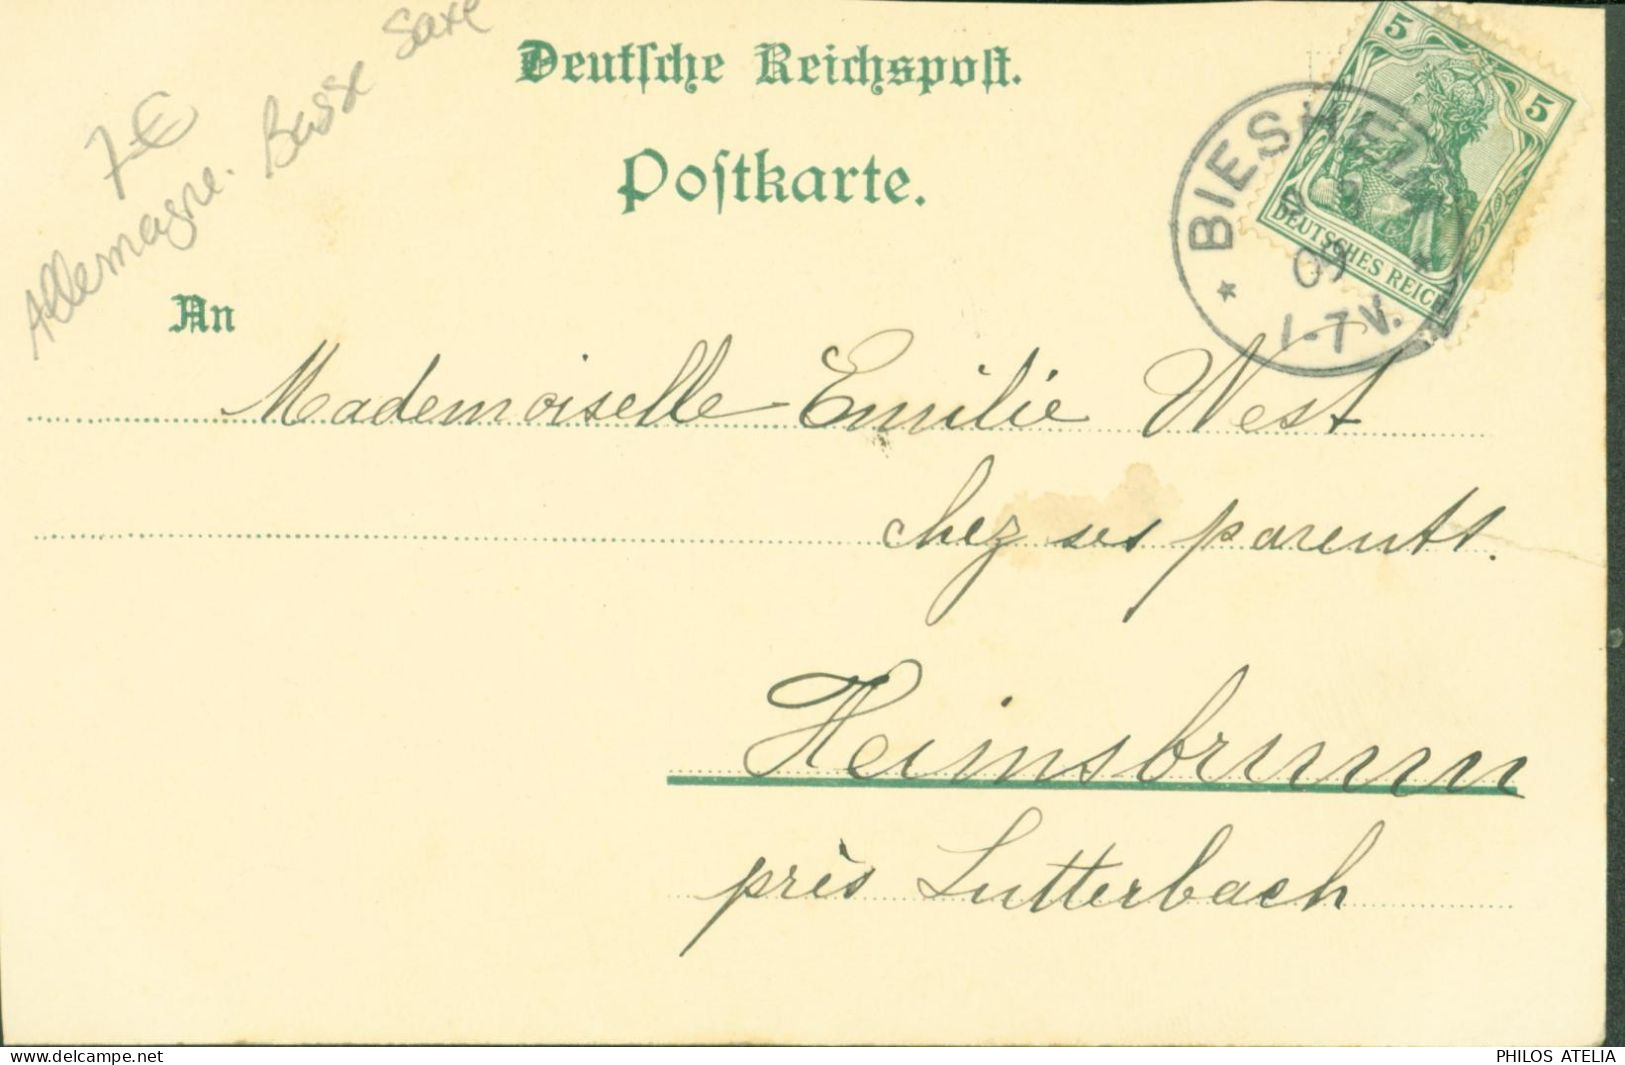 7-€
Allemagne. Basse Saxe
Deutsche Reichspost.
Postkarte.
An
5
5
DEUTSCHES REICH
BIESHEIM
09
1-7 V.
Mademoiselle Emilie West
chez ses parents.
Heimsbrunn
près Lutterbach
www.delcampe.net
PHILOS ATELIA